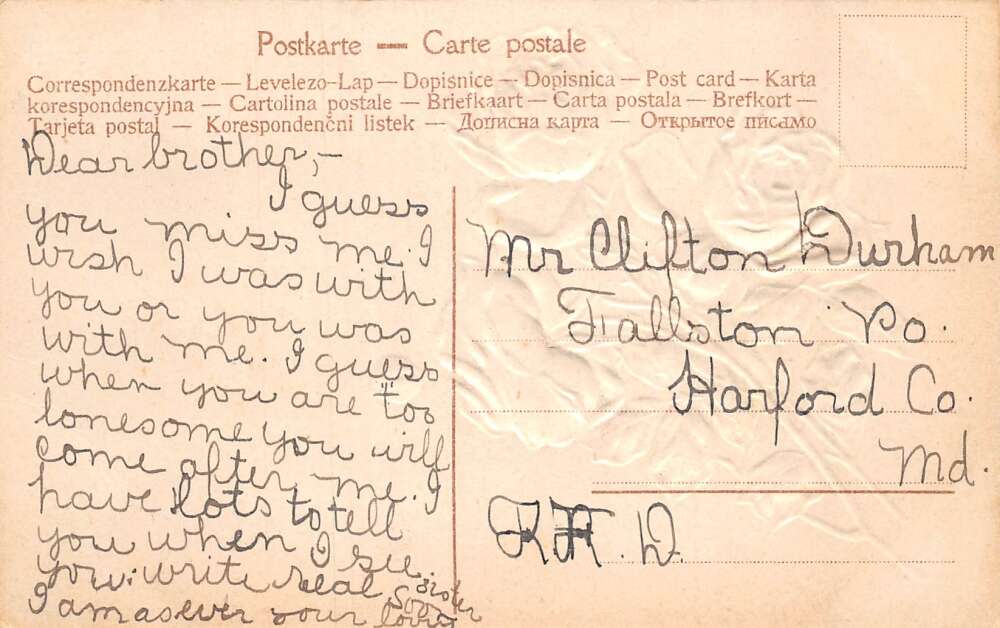 Postkarte — Carte postale
Correspondenzkarte — Levelezo-Lap — Dopisnice — Dopisnica — Post card — Karta
korespondencyjna — Cartolina postale — Briefkaart — Carta postala — Brefkort —
Tarjeta postal — Korespondenčni listek — Дописна карта — Открытое письмо
Dear brother,—
I guess
you miss me. I
wish I was with
you or you was
with me. I guess
when you are too
lonesome you will
come after me. I
have lots to tell
you when I see
you. write real soon
I am as ever your loving
sister
Mr Clifton Durham
Fallston Po.
Harford Co.
Md.
R.F.D.